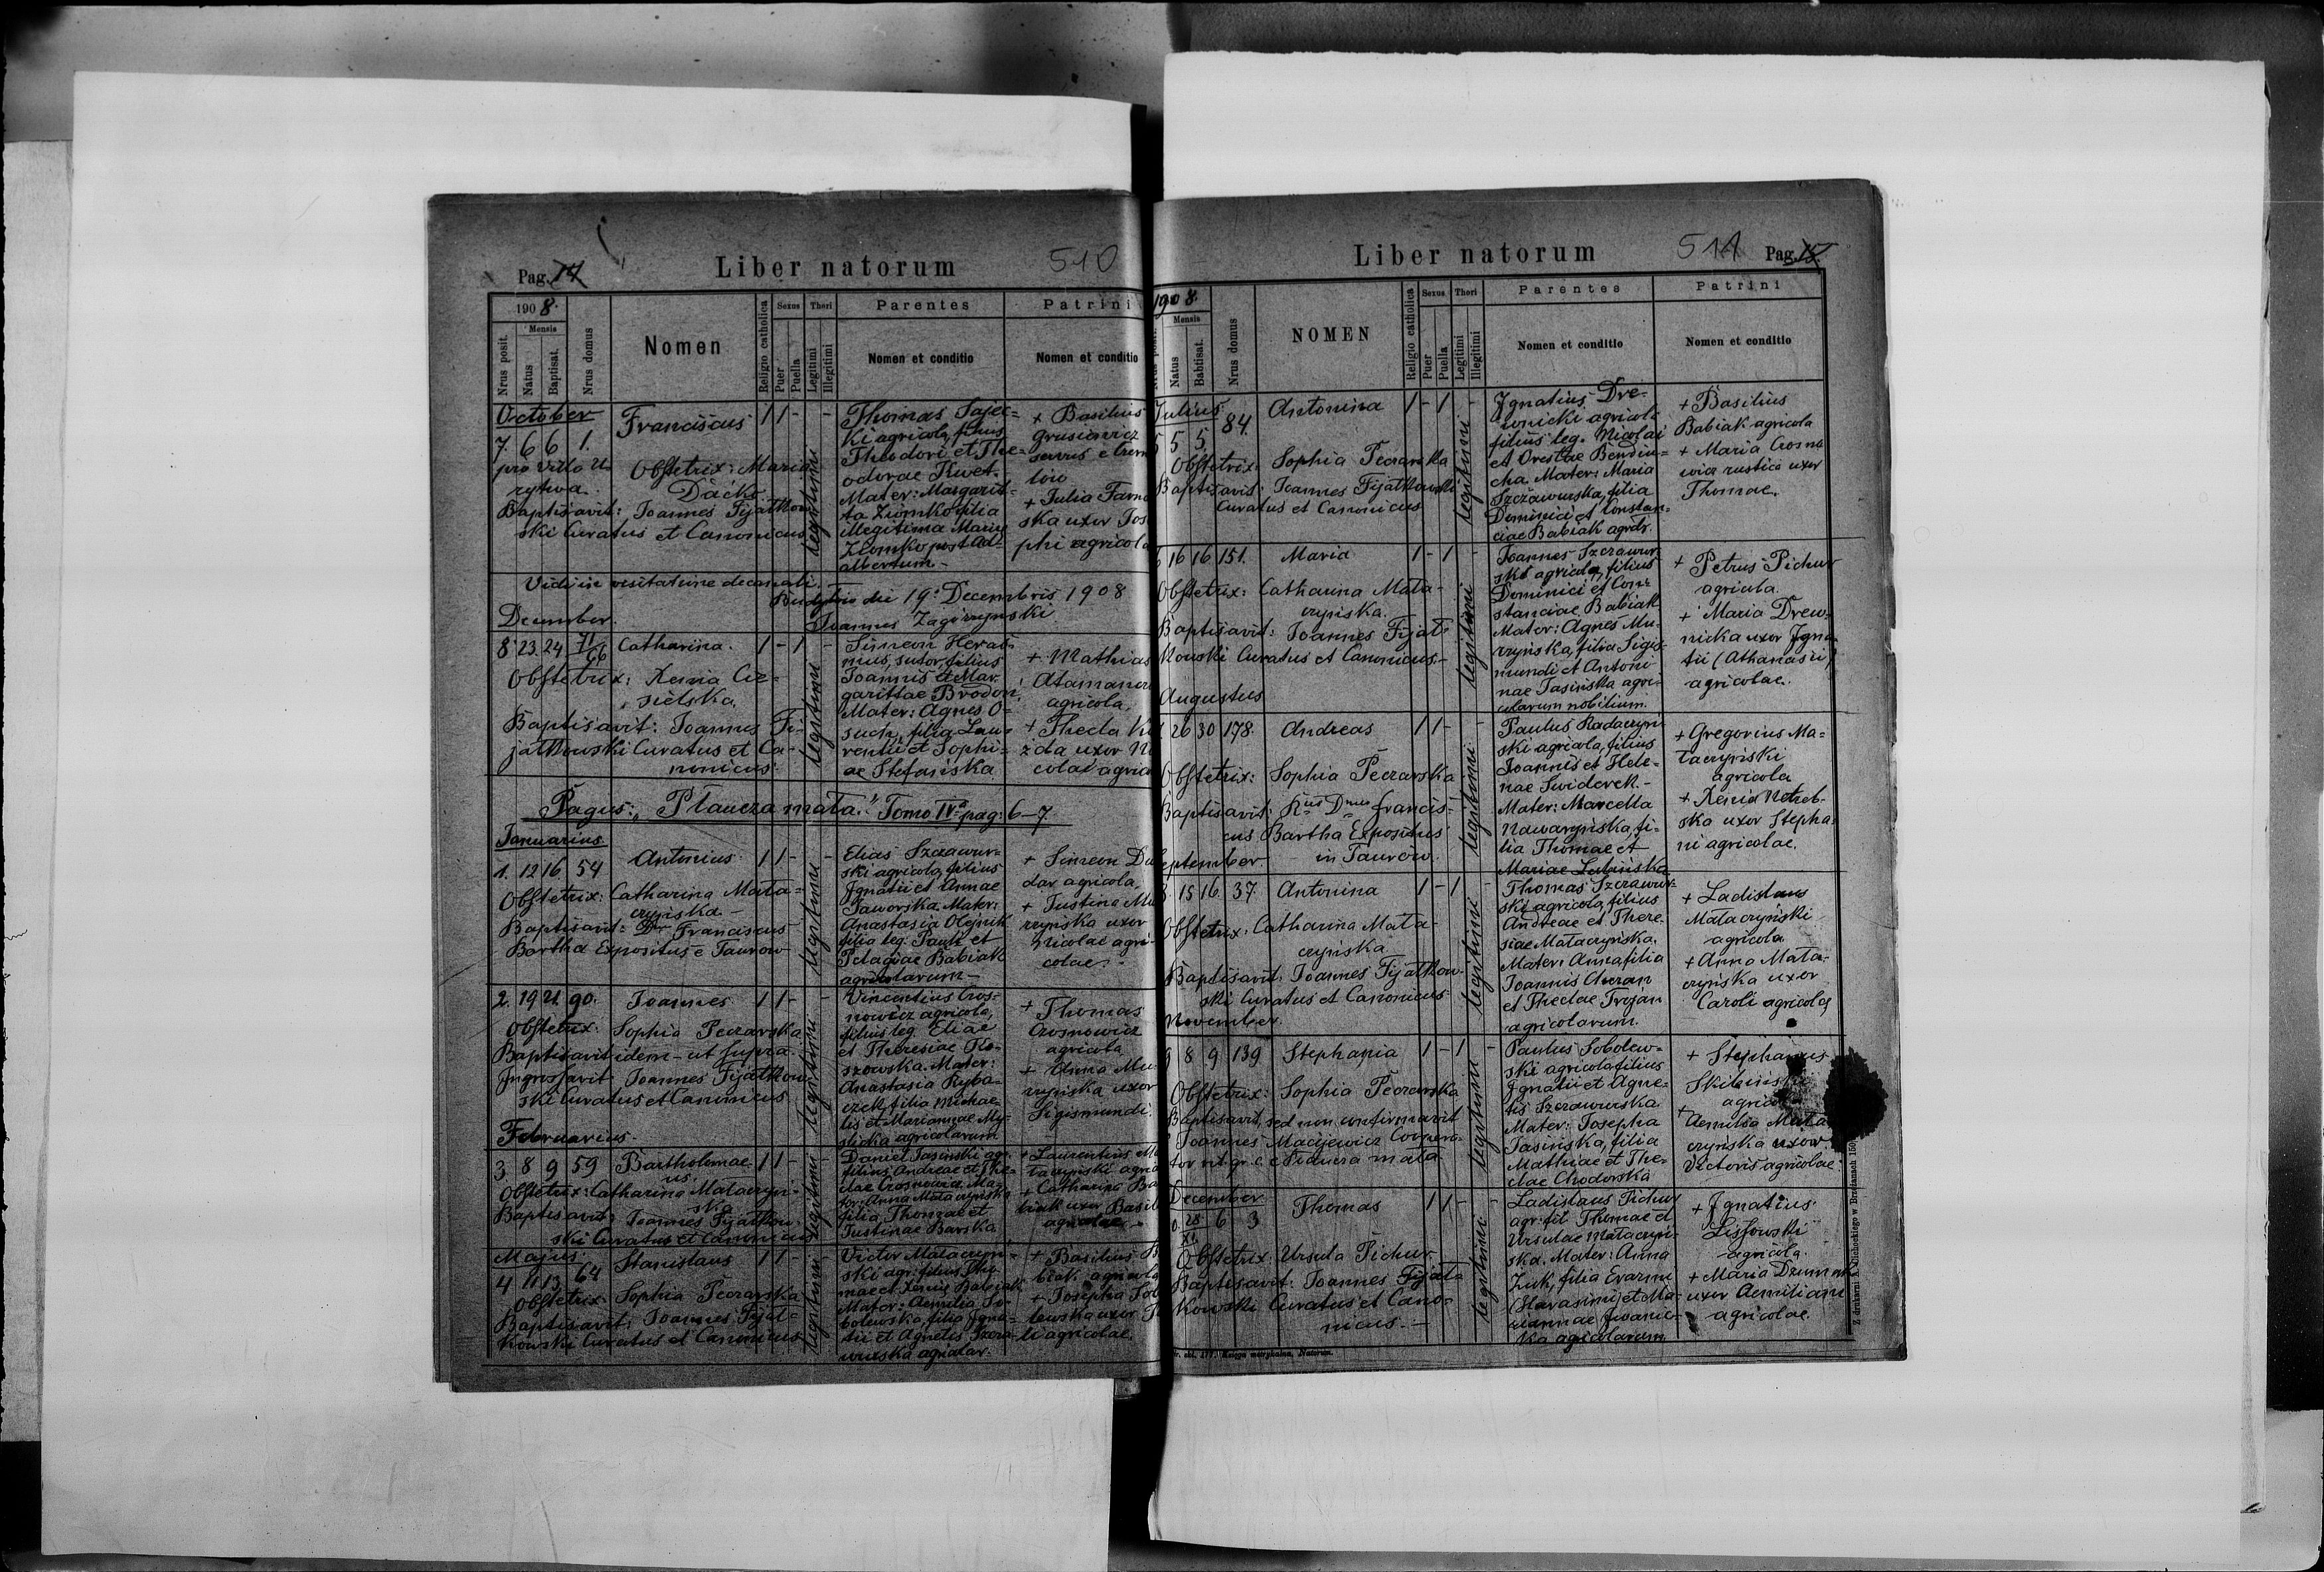 Pag. 14
Liber natorum
510
1908.
Nrus posit.
Mensis
Natus
Baptisat.
Nrus domus
Nomen
Religio catholica
Sexus
Puer
Puella
Thori
Legitimi
Illegitimi
Parentes
Nomen et conditio
Patrini
Nomen et conditio
October
7. 6 6 1.
Franciscus 1 1 - -
legitimi
Obstetrix: Maria
Dacko
Baptisavit: Joannes Fijałkow
ski Curatus et Canonicus
Thomas Sajec=
ki agricola, filius
Theodori et The=
odorae
Mater: Margarit-
ta Ziomko filia
illegitima Mariae
Ziomko post Ad=
albertum -
+ Basilius
Grusiewicz
servus
+ Julia
ska uxor Jos
phi agricola
Vidi in visitatione decanali
die 19. Decembris 1908
Joannes Zagórzyński
December.
8. 23. 24 71/66 Catharina. 1 - 1 -
legitimi
Obstetrix: Xenia Cie-
sielska
Baptisavit: Joannes Fi-
jałkowski Curatus et Ca-
nonicus.
Simeon Heras
mus, sutor, filius
Joannis et Mar
garittae
Mater: Agnes O=
such, filia Lau=
rentii et Sophi=
ae Stefańska
+ Mathias
agricola,
+ Thecla
uxor Ni
colai agric
Pagus: "Płaucza mała." Tomo IVº pag: 6-7
Januarius
1. 12 16 54 Antonius 1 1 - -
legitimi
Obstetrix: Catharina Mata=
czyńska -
Baptisavit: Dr Franciscus
Bartha Expositus e Taurow
Elias Szczawur=
ski agricola, filius
Ignatii et Annae
Jaworska. Mater:
Anastasia Olejnik
filia leg. Pauli et
Pelagiae Babiak
agricolarum -
+ Simeon Du
dar agricola,
+ Justina Mu
rzyńska uxor
Nicolai agri-
colae. -
2. 19 21. 90. Joannes 1 1 - -
legitimi
Obstetrix: Sophia Peczarska
Baptisavit idem - ut supra.
Ingrossavit Joannes Fijałkow
ski Curatus et Canonicus
Vincentius Cros-
nowicz agricola,
filius leg. Eliae
et Theresiae
Mater:
Anastasia Ryba-
czek, filia Michae-
lis et Mariannae My-
slicka agricolarum
+ Thomas
Crosnowicz
agricola
+ Anna Mu-
rzyńska uxor
Sigismundi.
Februarius.
3 8 9 59 Bartholomae 1 1 - -
us.
legitimi
Obstetrix: Catharina Mataczyń-
ska
Baptisavit: Joannes Fijałkow
ski Curatus et Canonicus
Daniel Jasinski agr.
filius Andreae et The-
clae Crosnowicz. Ma-
ter: Anna Mataczyńska
filia Thomae et
Justinae Barska
+ Laurentius Ma
taczyński agric
+ Catharina Ba
biak uxor Basil
agricolae -
Majus
4 11 13 64 Stanislaus 1 1 - -
legitimi
Obstetrix: Sophia Peczarska
Baptisavit: Joannes Fijał-
kowski Curatus et Canonicus
Victor Mataczyń-
ski agr. filius Tho
mae et Xeniae Babiak
Mater: Aemilia So-
bolewska, filia Igna-
tii et Agnetis Szcza-
wurska agricolar.
+ Basilius B
biak agricola
+ Josepha Sob
lewska uxor P
li agricolae.
Liber natorum
511 Pag. 15
1908.
Mensis
Natus
Babtisat.
Nrus domus
NOMEN
Religio catholica
Sexus
Puer
Puella
Thori
Legitimi
Illegitimi
Parentes
Nomen et conditio
Patrini
Nomen et conditio
Julius
5 5 5 84. Antonina 1 - 1 -
legitimi
Obstetrix: Sophia Peczarska
Baptisavit: Joannes Fijałkowski
Curatus et Canonicus
Ignatius Dre-
wnicki agricola
filius leg. Nicolai
et Orestae Bendiu=
cha. Mater: Maria
Szczawurska, filia
Dominici et Constan-
ciae Babiak agrar.
+ Basilius
Babiak agricola
+ Maria Crosno
wicz rustica uxor
Thomae.
6 16 16 151. Maria 1 - 1 -
legitimi
Obstetrix: Catharina Mata-
czyńska.
Baptisavit: Joannes Fijał-
kowski Curatus et Canonicus. -
Joannes Szczawur
ski agricola, filius
Dominici et Con=
stanciae Babiak
Mater: Agnes Mu-
rzyńska, filia Sigis-
mundi et Antoni-
nae Jasińska agri-
colarum nobilium.
+ Petrus Pichur
agricola.
+ Maria Drew-
nicka uxor Igna-
tii (Athanasii)
agricolae.
Augustus
26 30 178. Andreas 1 1 - -
legitimi
Obstetrix: Sophia Peczarska
Baptisavit: Rus Dnus Francis-
cus Bartha Expositus
in Taurów.
Paulus Radaczyń-
ski agricola, filius
Joannis et Hele-
nae Swiderek. -
Mater: Marcella
Nawaryńska, fi-
lia Thomae et
Mariae Lubińska
+ Gregorius Ma=
taczyński
agricola
+ Xenia Notreb-
ska uxor Stepha
ni agricolae.
September
8. 15 16. 37. Antonina 1 - 1 -
legitimi
Obstetrix: Catharina Mata-
czyńska
Baptisavit: Joannes Fijałkow-
ski Curatus et Canonicus
Thomas Szczawur-
ski agricola, filius
Andreae et There-
siae Mataczyńska.
Mater: Anna filia
Joannis
et Theclae Trojan
agricolarum.
+ Ladislaus
Mataczyński
agricola
+ Anna Mata-
czyńska uxor
Caroli agricolae
November.
9 8 9 139 Stephania 1 - 1 -
legitimi
Obstetrix: Sophia Peczarska
Baptisavit, sed non confirmavit
Joannes Macijewicz Coopera-
tor rit. gr. c. e Płaucza mała
Paulus Sobolew-
ski agricola filius
Ignatii et Agne-
tis Szczawurska
Mater: Josepha
Jasińska, filia
Mathiae et The-
clae Chodorska
+ Stephanus
Skibiński
agricola
+ Aemilia Mata
czyńska uxor
Victoris agricolae.
December
28/XI. 6 3 Thomas 1 1 - -
legitimi
Obstetrix: Ursula Pichur.
Baptisavit: Joannes Fijał=
kowski Curatus et Cano-
nicus. -
Ladislaus Pichur
agr. fil. Thomae et
Ursulae Mataczyń-
ska. Mater: Anna
Żuk, filia Erazmi
(Harasimi) et Ma-
riannae Iwanic-
ka agricolarum
+ Ignatius
Lissowski
agricola.
+ Maria
uxor Aemiliani
agricolae.
Księga metrykalna, Natorum.
Z drukarni A. Klichockiego w Brzeżanach